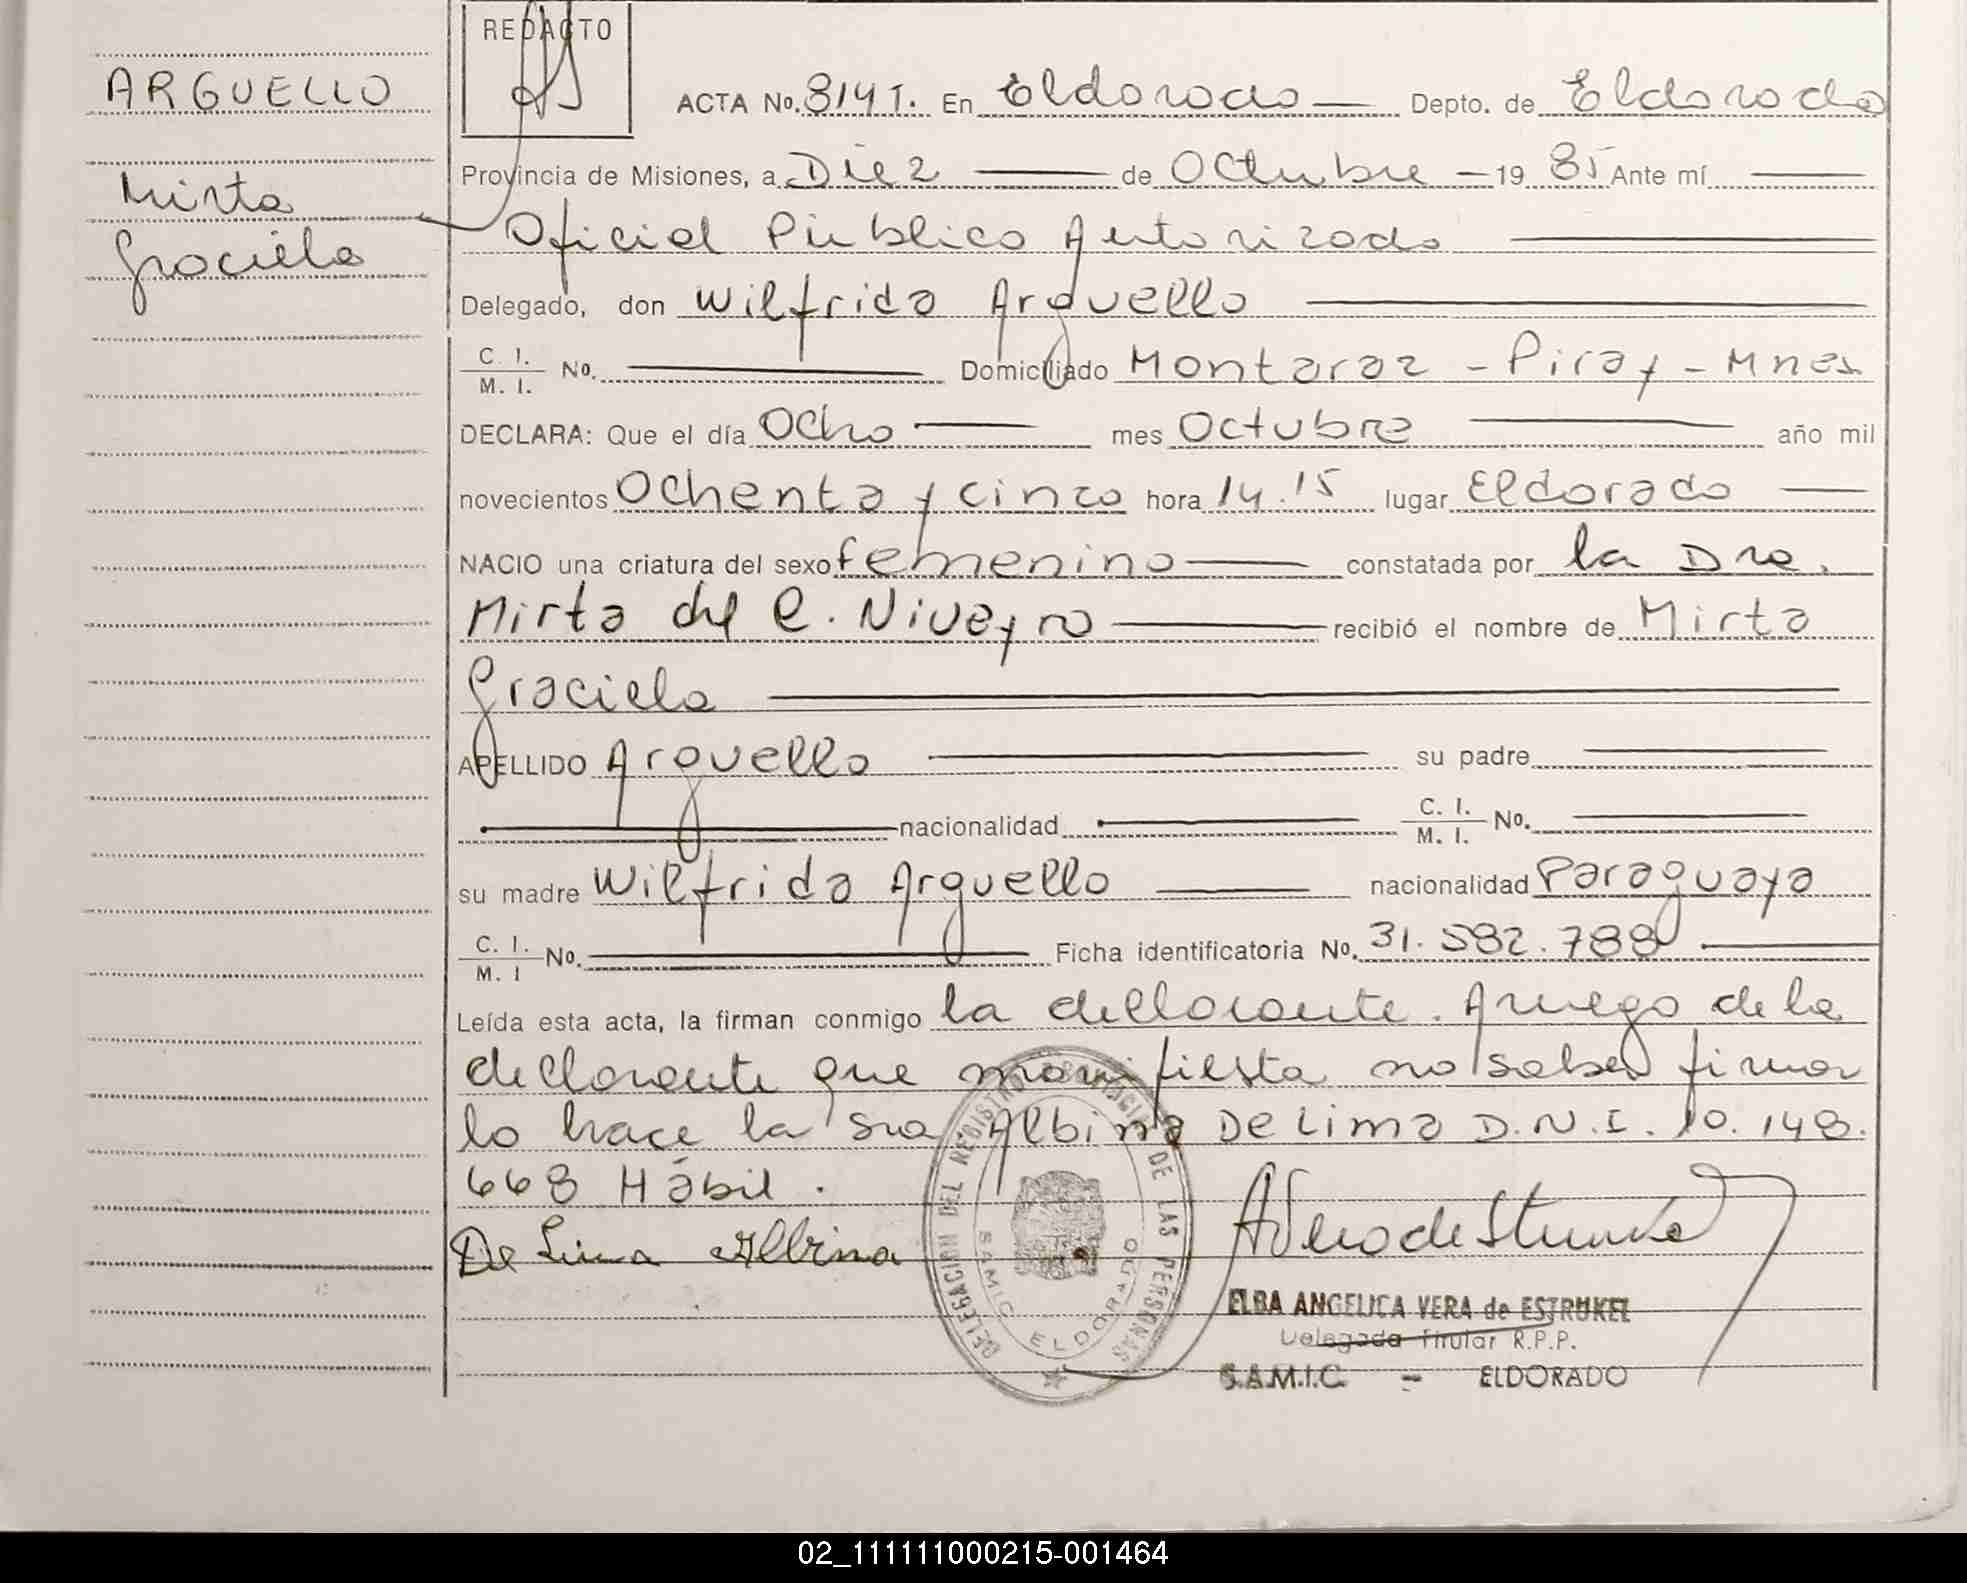 ARGUELLO
Mirta
Graciela
REDACTO
ACTA No. 814 I. En Eldorado Depto. de Eldorado
Provincia de Misiones, a Diez de Octubre 1985 Ante mí
Oficial Público Autorizado
Delegado, don Wilfrida Arguello
C. I. / M. I. No. Domiciliado Montaraz - Piray - Mnes
DECLARA: Que el día Ocho mes Octubre año mil
novecientos Ochenta y cinco hora 14.15 lugar Eldorado
NACIO una criatura del sexo femenino constatada por la Dra.
Mirta del C. Niveyro recibió el nombre de Mirta
Graciela
APELLIDO Arguello su padre
nacionalidad C. I. / M. I. No.
su madre Wilfrida Arguello nacionalidad Paraguaya
C. I. / M. I No. Ficha identificatoria No. 31.582.788
Leída esta acta, la firman conmigo la declarante. A ruego de la
declarante que manifiesta no saber firmar
lo hace la Sra Albina De Lima D.N.I. 10.148.
668 Hábil.
De Lima Albina
DELEGACION DEL REGISTRO PROVINCIAL DE LAS PERSONAS
SAMIC ELDORADO
ELBA ANGELICA VERA de ESTRUKEL
Delegada Titular R.P.P.
S.A.M.I.C. - ELDORADO
02_111111000215-001464